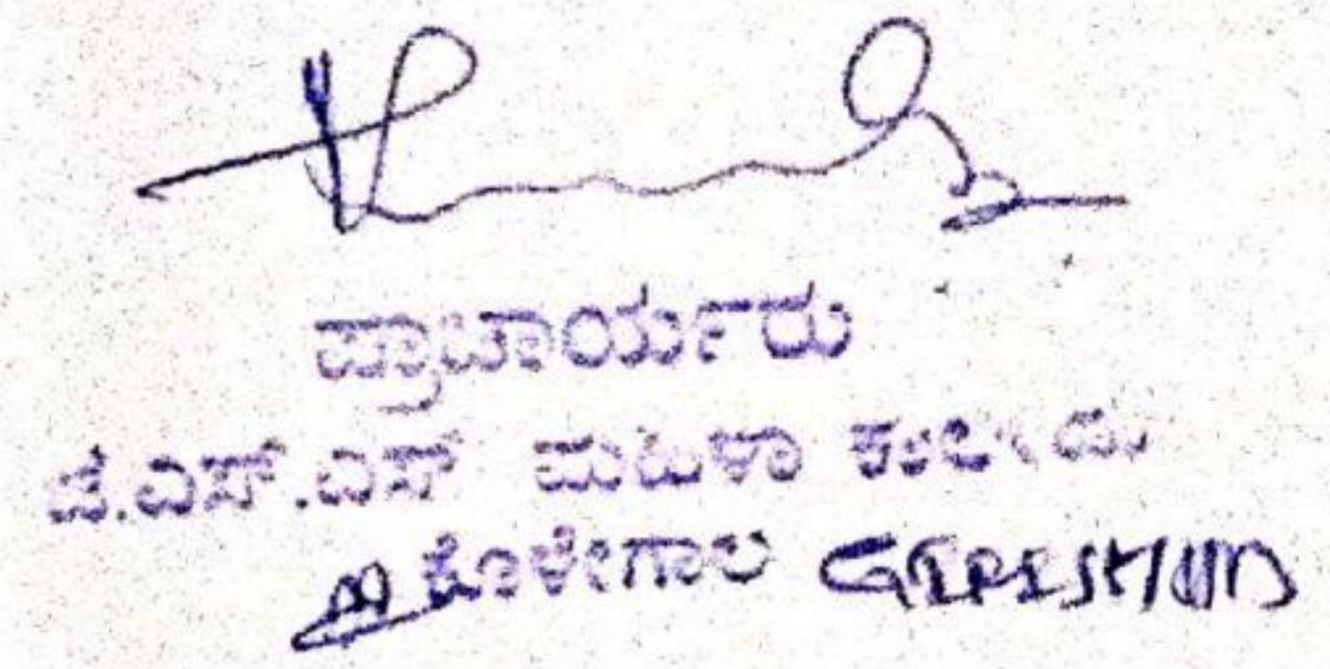 ಪ್ರಾಚಾರ್ಯರು
ಜೆ.ಎಸ್.ಎಸ್ ಮಹಿಳಾ ಕಾಲೇಜು
ಕೊಳ್ಳೇಗಾಲ